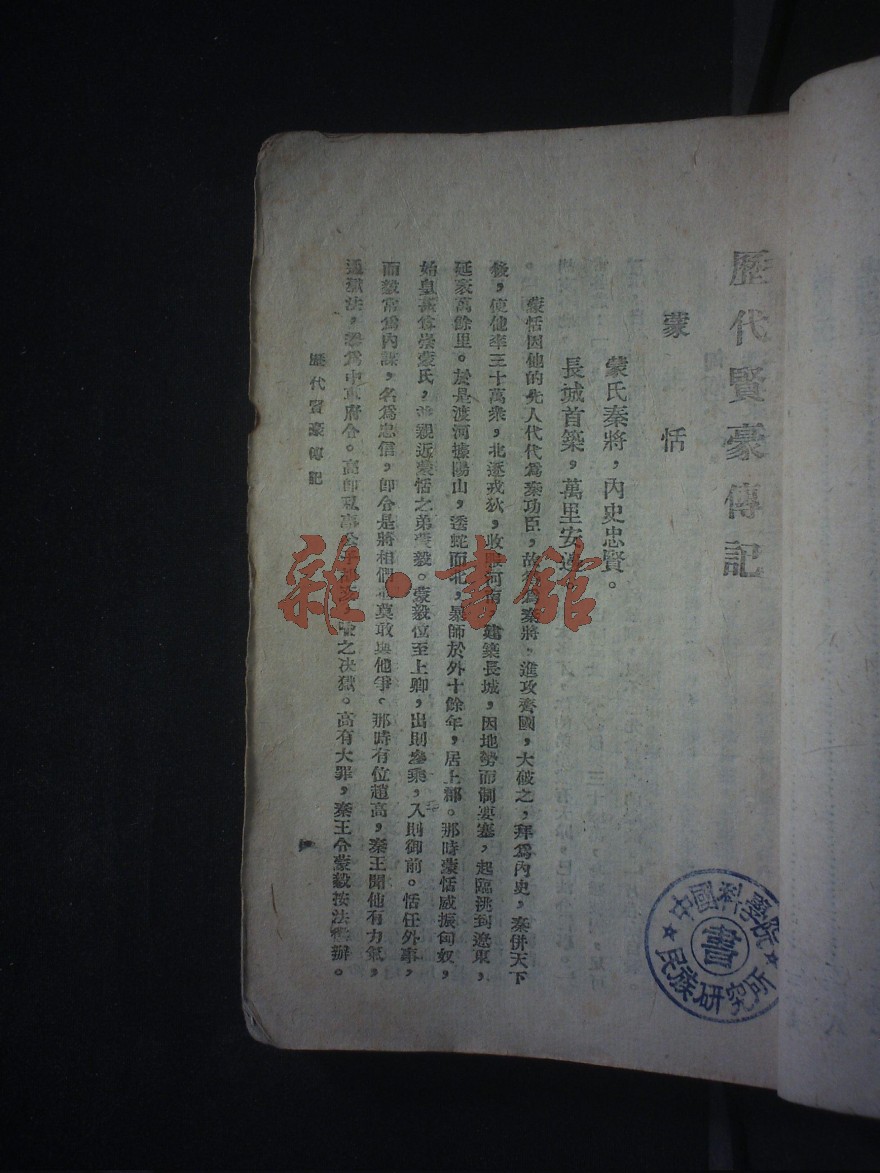 歷代賢豪傳記
蒙恬
蒙氏秦將，內史忠賢。
長城首築，萬里安邊。
蒙恬因他的先人代代爲秦功臣，故得爲秦將，進攻齊國，大破之，拜爲內史，秦併天下
後，使他率三十萬衆，北逐戎狄，收服河南，建築長城，因地勢而制要塞，起臨洮到遼東，
延袤萬餘里。於是渡河據陽山，逶蛇而北，暴師於外十餘年，居上郡。那時蒙恬威振匈奴，
始皇甚爲崇蒙氏，並親近蒙恬之弟蒙毅。蒙毅位至上卿，出則參乘，入則御前。恬任外事，
而毅常爲內謀，名爲忠信，卽令是將相們也莫敢與他爭。那時有位趙高，秦王聞他有力氣，
通獄法，舉爲中車府令。高卽私事公子胡亥，之決獄。高有大罪，秦王令蒙毅按法辦。
歷代賢豪傳記
中國科學院
民族研究所
書
雜·書館